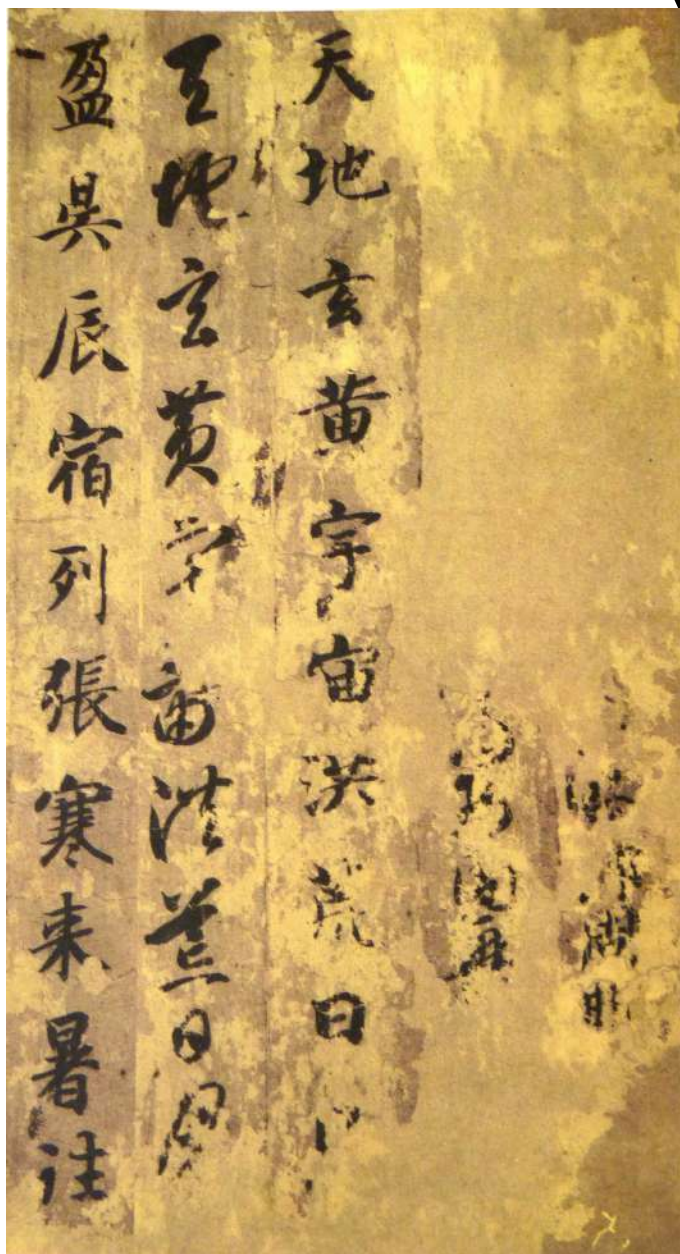 天地玄黄宇宙洪荒日
天地玄黄宇宙洪荒日月
盈昃辰宿列張寒来暑往